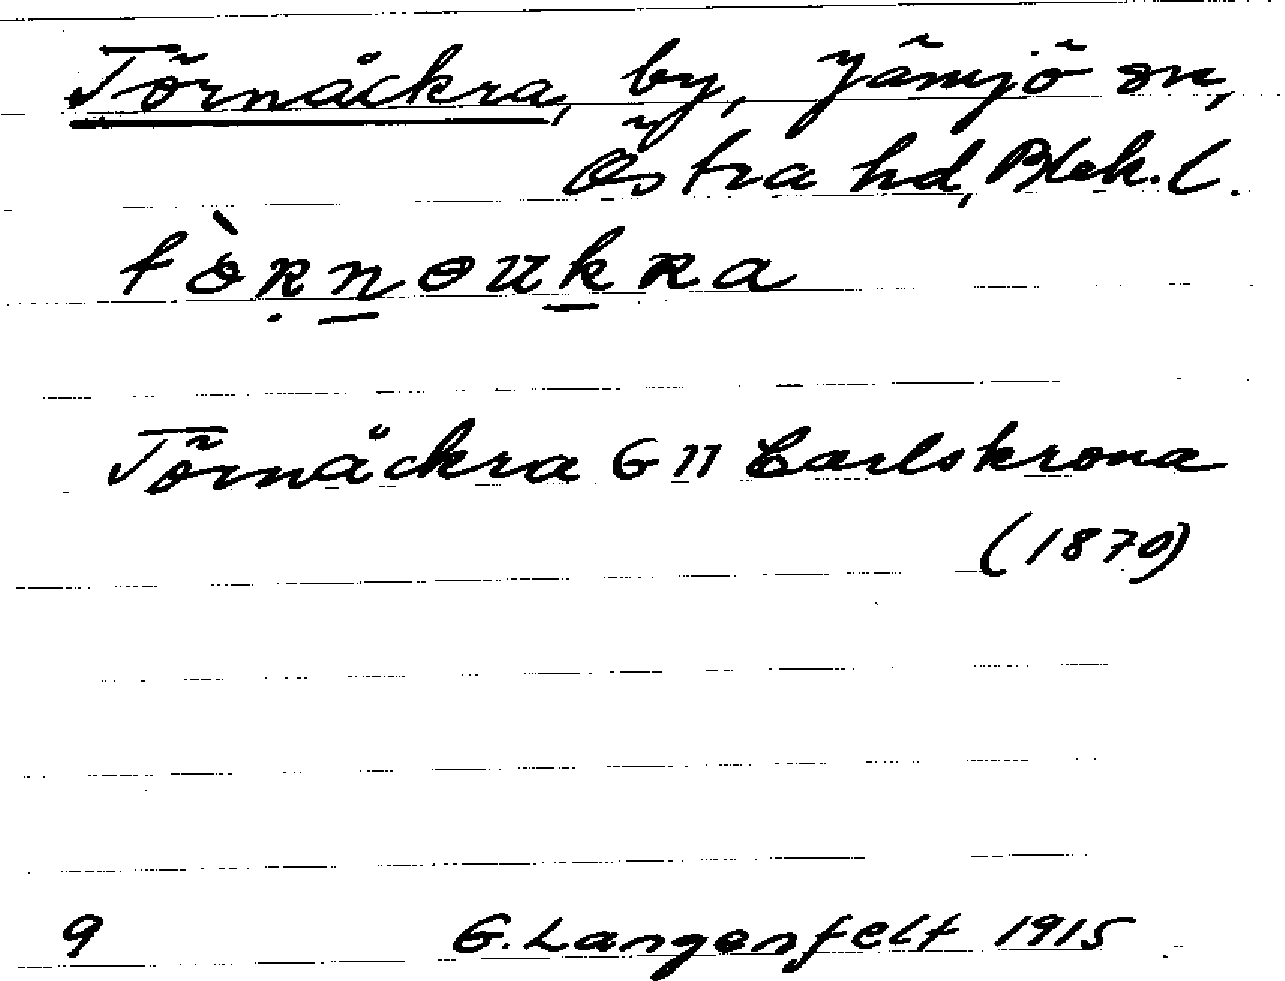 Törnåckra, by, Jämjö sn,
Östra hd, Blek. l.
tòʀ̣n̲ouk̲ʀa
Törnåckra G II Carlskrona
(1870)
9 G. Langenfelt 1915